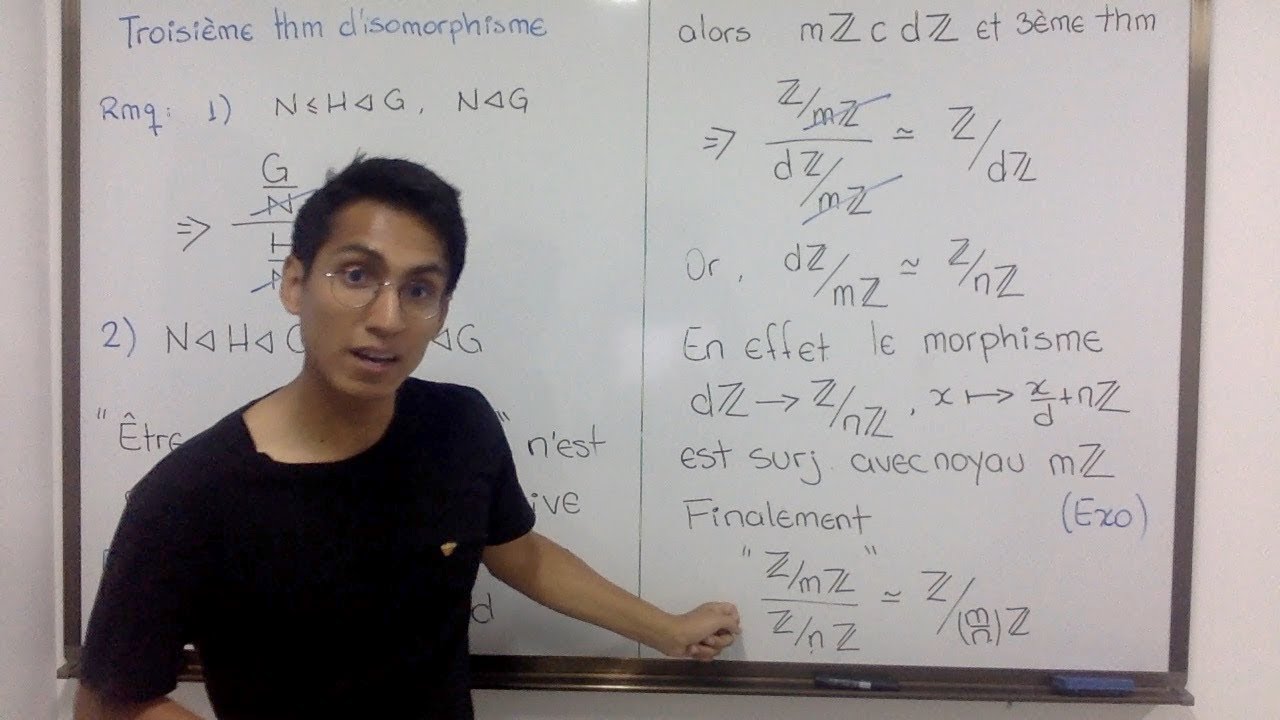 Troisième thm d'isomorphisme
Rmq: 1) N ≤ H ⊲ G, N ⊲ G
G
N
⇒
2) N ⊲ H ⊲ ⊲ G
" Être " n'est
alors mℤ ⊂ dℤ et 3ème thm
⇒ (ℤ/mℤ) / (dℤ/mℤ) ≃ ℤ/dℤ
Or, dℤ/mℤ ≃ ℤ/nℤ
En effet le morphisme
dℤ → ℤ/nℤ, x ↦ x/d + nℤ
est surj. avec noyau mℤ
Finalement (Exo)
" (ℤ/mℤ) " / (ℤ/nℤ) ≃ ℤ/(m/n)ℤ